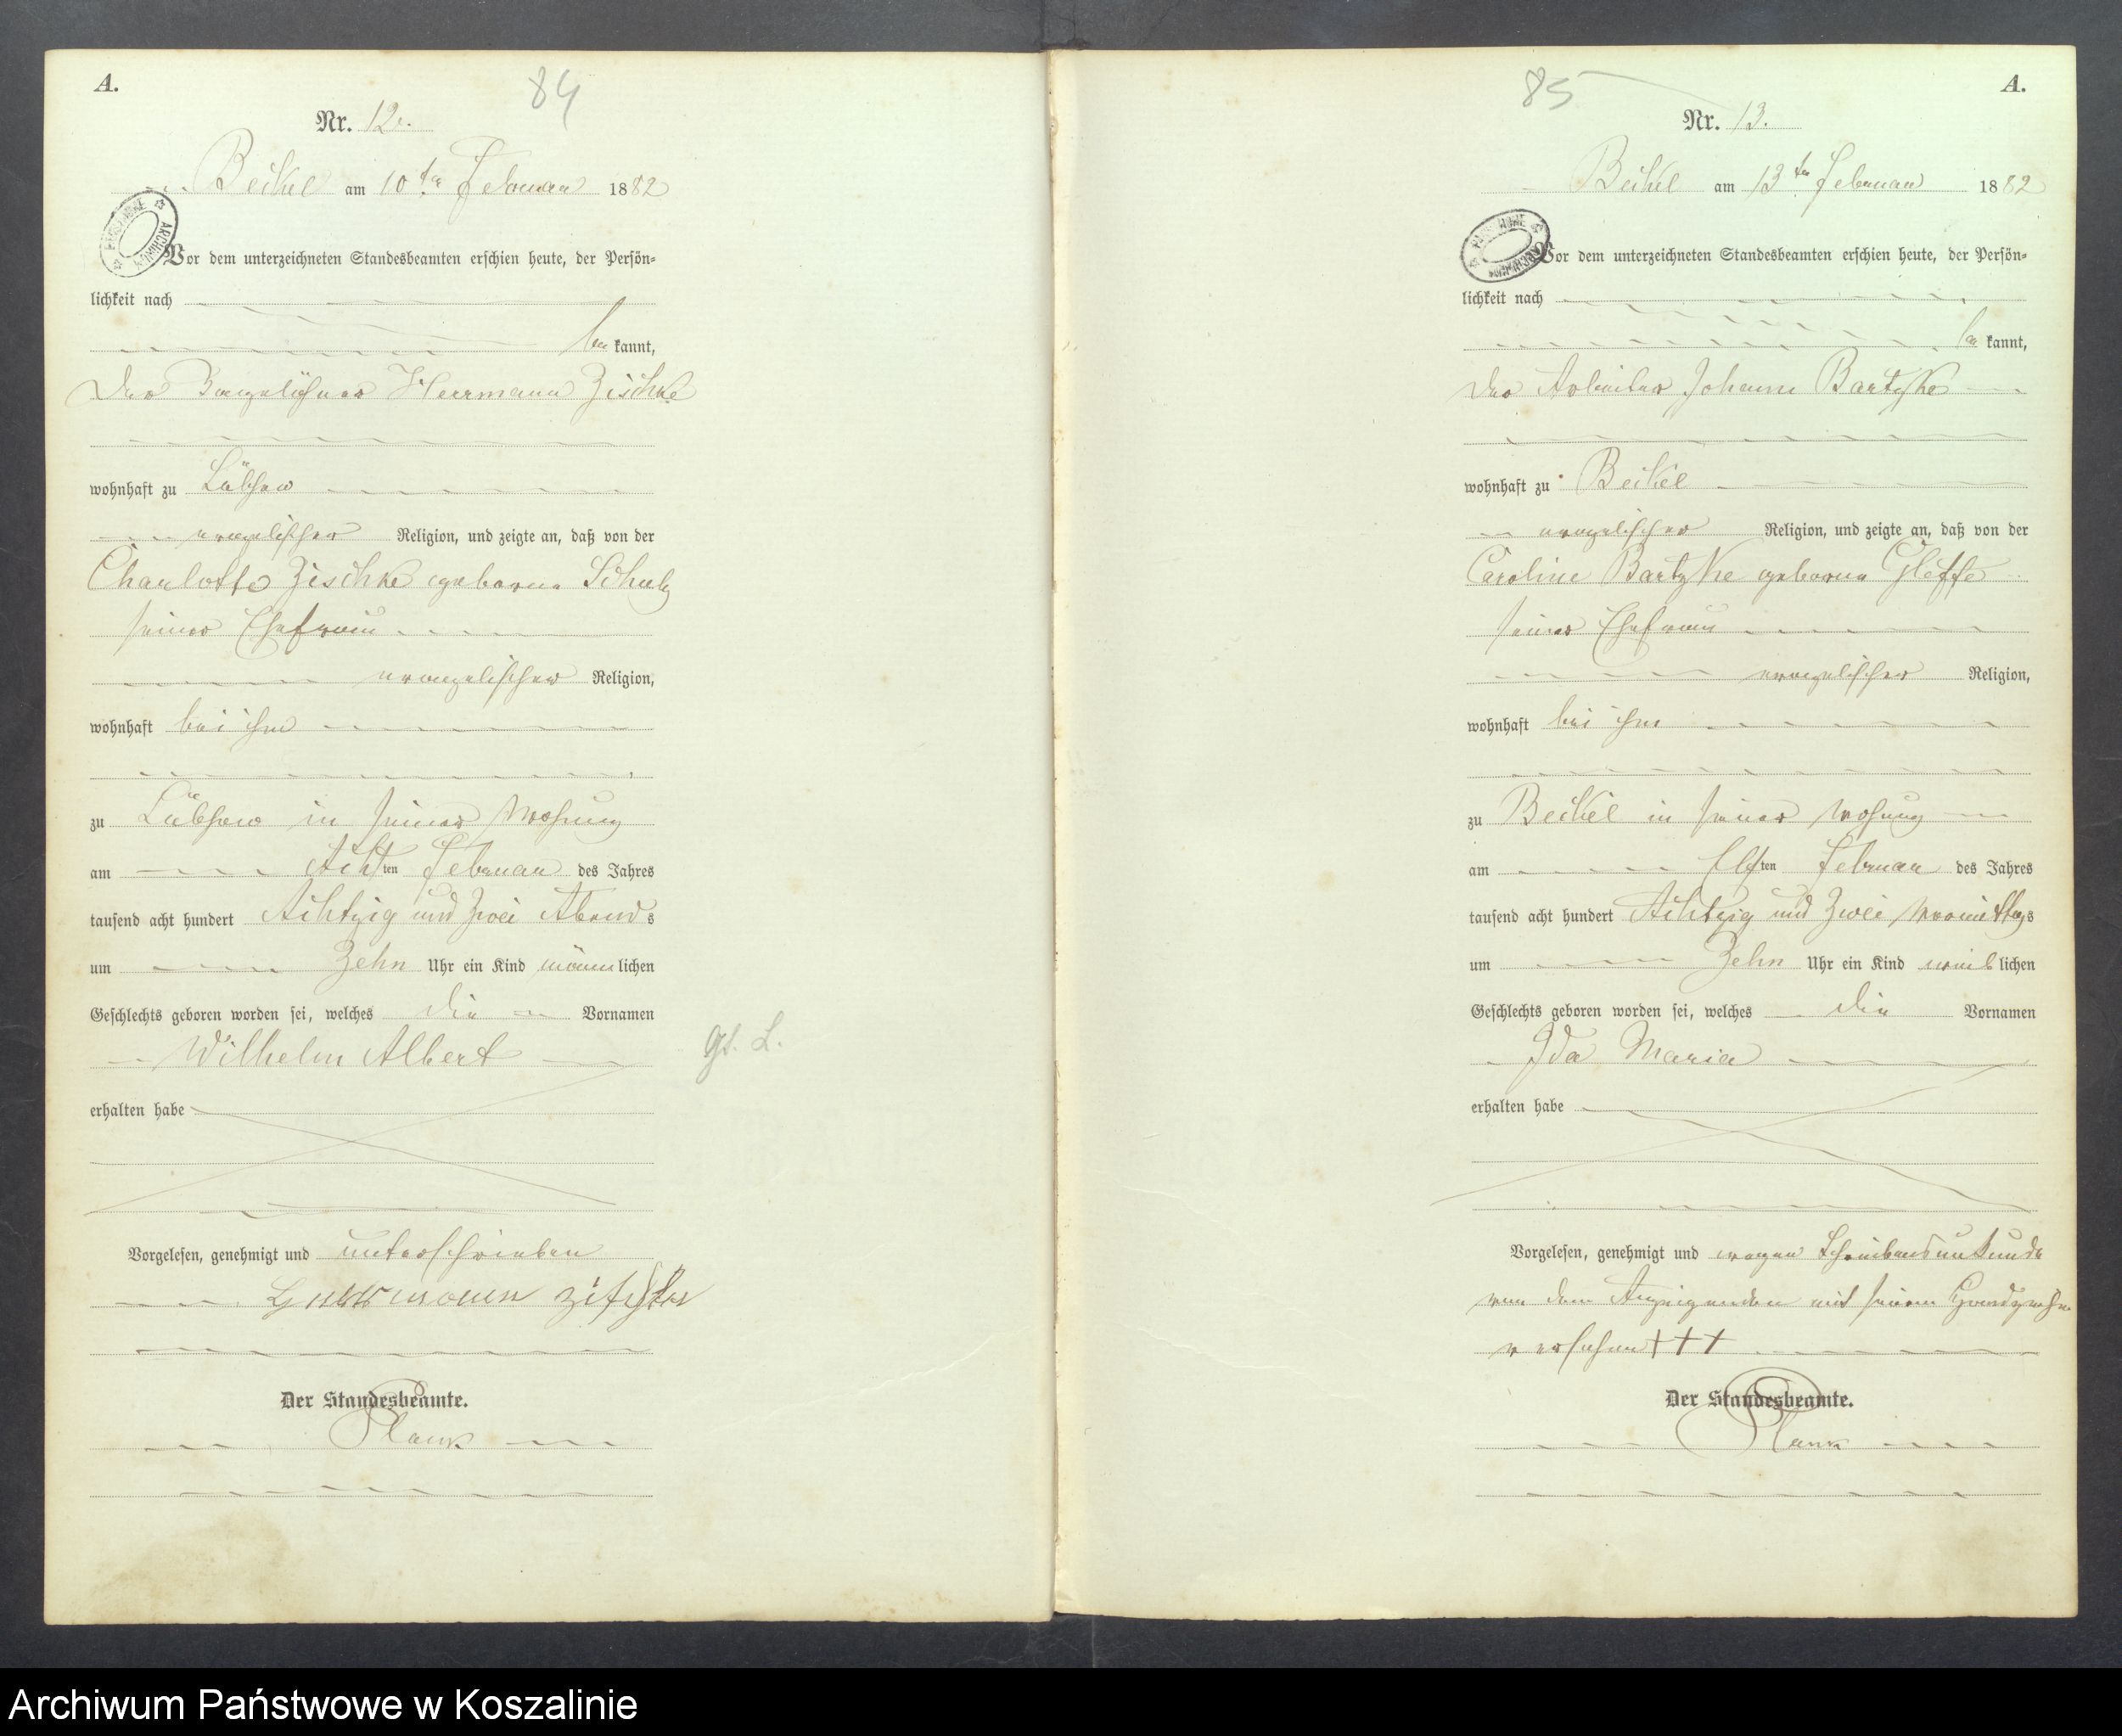 A.
84
Nr. 12.
Beikel am 10ten Februar 1882
Vor dem unterzeichneten Standesbeamten erschien heute, der Persön-
lichkeit nach
be kannt,
der Tagelöhner Herrmann Zischke
wohnhaft zu Lübzow
evangelischer Religion, und zeigte an, daß von der
Charlotte Zischke geborne Schulz
seiner Ehefrau
evangelischer Religion,
wohnhaft bei ihm
zu Lübzow in seiner Wohnung
am Achtten Februar des Jahres
tausend acht hundert Achtzig und Zwei Abends
um Zehn Uhr ein Kind männlichen
Geschlechts geboren worden sei, welches die Vornamen
Wilhelm Albert
gt. L.
erhalten habe
Vorgelesen, genehmigt und unterschrieben
Herrmann Zischke
Der Standesbeamte.
A.
85
Nr. 13.
Beikel am 13ten Februar 1882
Vor dem unterzeichneten Standesbeamten erschien heute, der Persön-
lichkeit nach
be kannt,
der Arbeiter Johann Bartzke
wohnhaft zu Beikel
evangelischer Religion, und zeigte an, daß von der
Caroline Bartzke geborne Gleffe
seiner Ehefrau
evangelischer Religion,
wohnhaft bei ihm
zu Beikel in seiner Wohnung
am Elften Februar des Jahres
tausend acht hundert Achtzig und Zwei Vormittags
um Zehn Uhr ein Kind weiblichen
Geschlechts geboren worden sei, welches die Vornamen
Ida Maria
erhalten habe
Vorgelesen, genehmigt und wegen Schreibensunkunde
von dem Anzeigenden mit seinem Handzeichen
versehen +++
Der Standesbeamte.
Archiwum Państwowe w Koszalinie